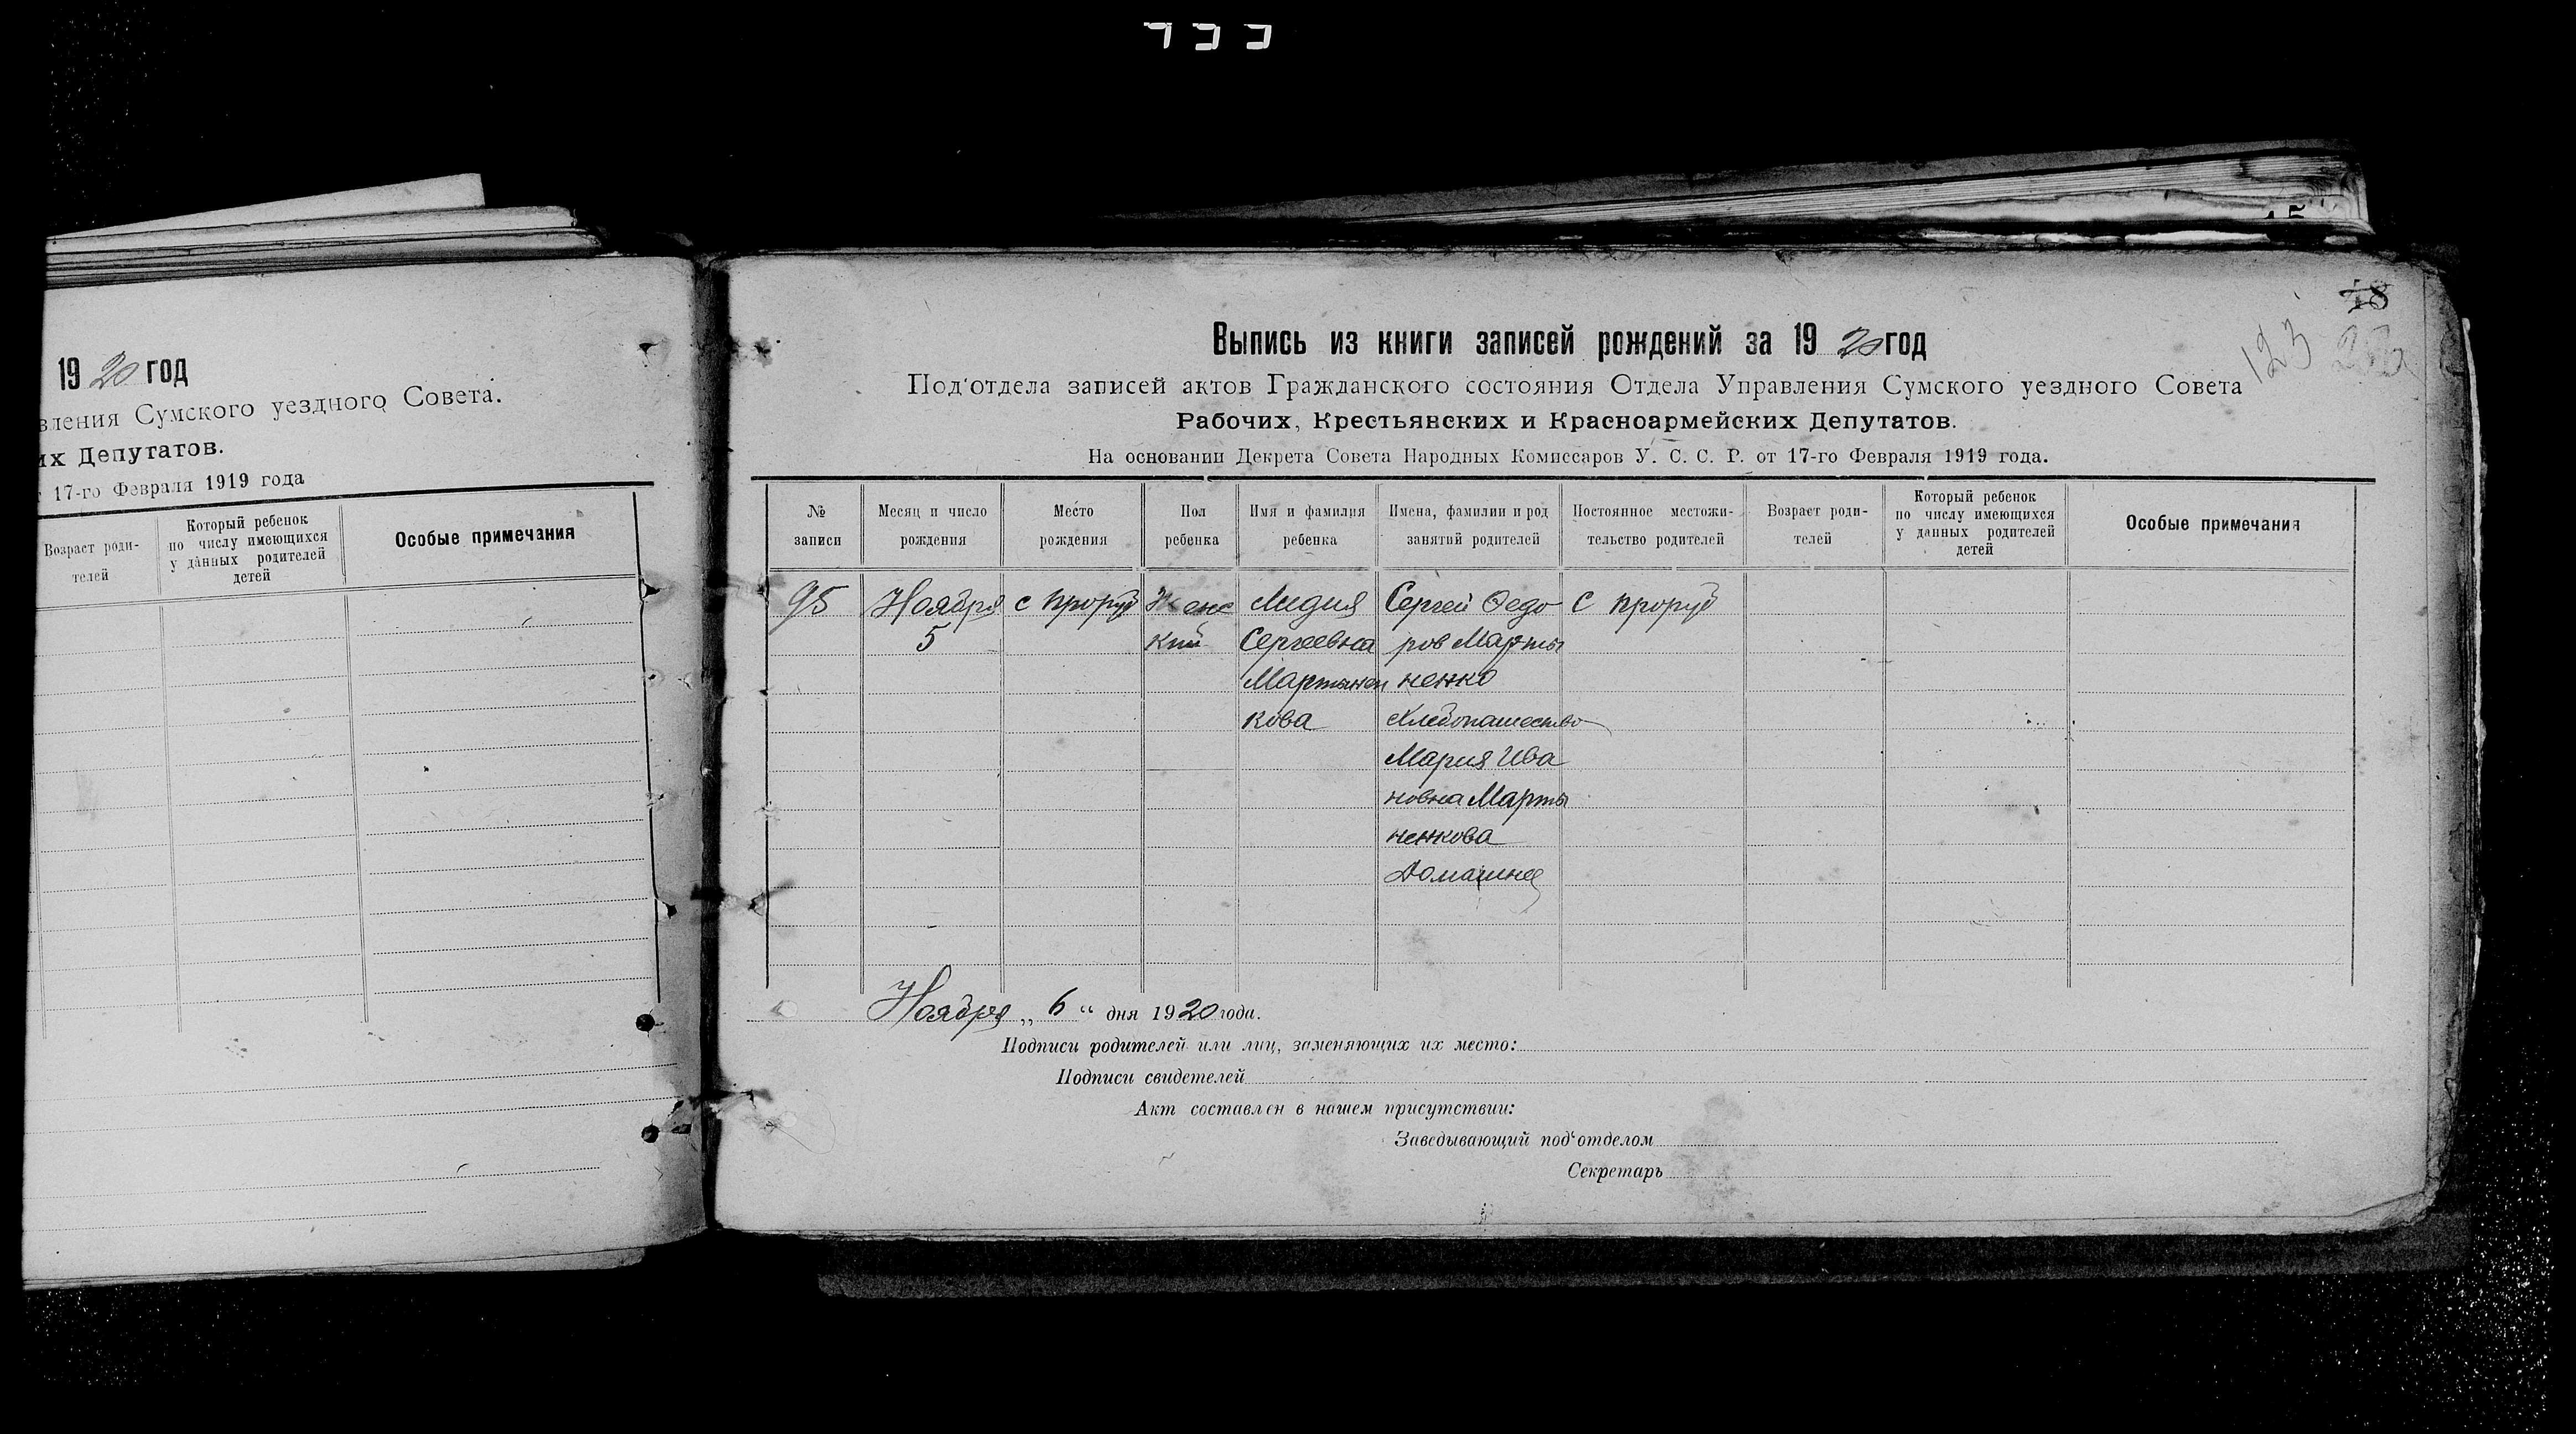 19 20 год
вления Сумского уездного Совета.
их Депутатов.
17-го Февраля 1919 года
Возраст роди-
телей
Который ребенок
по числу имеющихся
у данных родителей
детей
Особые примечания
48
123
Выпись из книги записей рождений за 19 20 год
Под‘отдела записей актов Гражданского состояния Отдела Управления Сумского уездного Совета
Рабочих, Крестьянских и Красноармейских Депутатов.
На основании Декрета Совета Народных Комиссаров У. С. С. Р. от 17-го Февраля 1919 года.
№
записи
Месяц и число
рождения
Место
рождения
Пол
ребенка
Имя и фамилия
ребенка
Имена, фамилии и род
занятий родителей
Постоянное местожи-
тельство родителей
Возраст роди-
телей
Который ребенок
по числу имеющихся
у данных родителей
детей
Особые примечания
95
Ноября
5
с Проруб
Женс
кий
Лидия
Сергеевна
Мартынен
кова
Сергей Федо
ров Марты
ненко
Хлебопашество
Мария Ива
новна Марты
ненкова
Домашнее
С Проруб
Ноября „ 6 “ дня 1920 года.
Подписи родителей или лиц, заменяющих их место:
Подписи свидетелей
Акт составлен в нашем присутствии:
Заведывающий под‘отделом
Секретарь